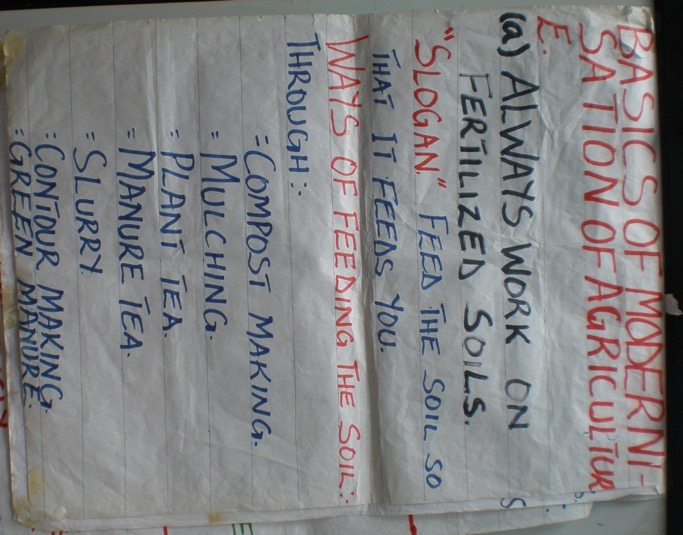 BASICS OF MODERNI-
SATION OF AGRICULTUR
E.
(a) ALWAYS WORK ON
FERTILIZED SOILS.
"SLOGAN." FEED THE SOIL SO
THAT IT FEEDS YOU.
WAYS OF FEEDING THE SOIL:
THROUGH:-
= COMPOST MAKING.
= MULCHING.
= PLANT TEA.
= MANURE TEA.
= SLURRY.
= CONTOUR MAKING.
= GREEN MANURE.